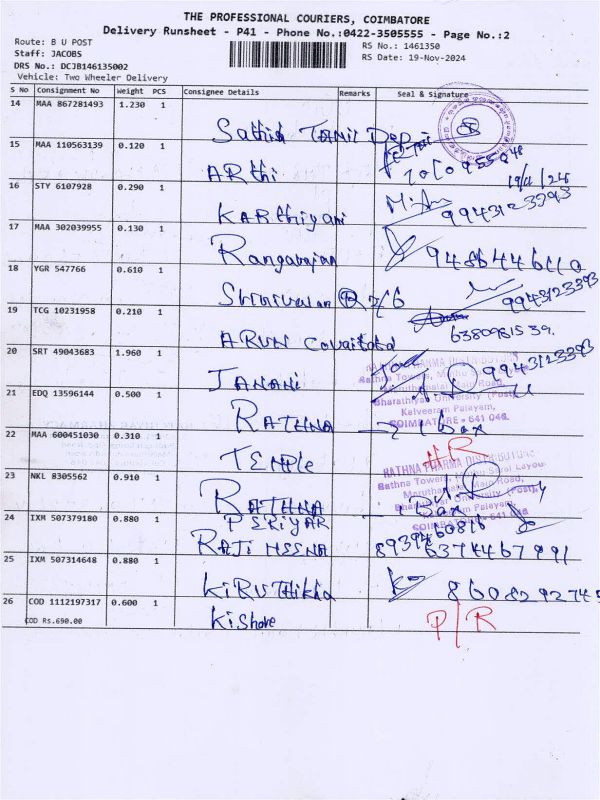 THE PROFESSIONAL COURIERS, COIMBATORE
Delivery Runsheet - P41 - Phone No.:0422-3505555 - Page No.:2
Route: B U POST
RS No.: 1461350
Staff: JACOBS
RS Date: 19-Nov-2024
DRS No.: DCJB146135002
Vehicle: Two Wheeler Delivery
S No Consignment No Weight PCS Consignee Details Remarks Seal & Signature
14 MAA 867281493 1.230 1 Tamil Dep
15 MAA 110563139 0.120 1 ARthi
19/11/24
16 STY 6107928 0.290 1 KARthiyani 9943123393
17 MAA 302039955 0.130 1 Rangarajan
18 YGR 547766 0.610 1 9943123393
19 TCG 10231958 0.210 1 ARUN 6380981539
20 SRT 49043683 1.960 1 JANANI 9943123393
RATHNA PHARMA DISTRIBUTORS
Rathna Towers,
Maruthamalai Main Road,
Bharathiyar University (Post),
Kalveeram Palayam,
COIMBATORE - 641 046
21 EDQ 13596144 0.500 1 RATHNA 1 Box
22 MAA 600451030 0.310 1 TEMPLE
RATHNA PHARMA DISTRIBUTORS
Rathna Towers, Layout
Maruthamalai Main Road,
23 NKL 8305562 0.910 1 RATHNA 1 Box
24 IXM 507379180 0.880 1 PERIYAR
RAJI MEENA 8939460816
6374467991
25 IXM 507314648 0.880 1 KIRUTHIKHA
26 COD 1112197317 0.600 1 Kishore P/R
COD RS.690.00